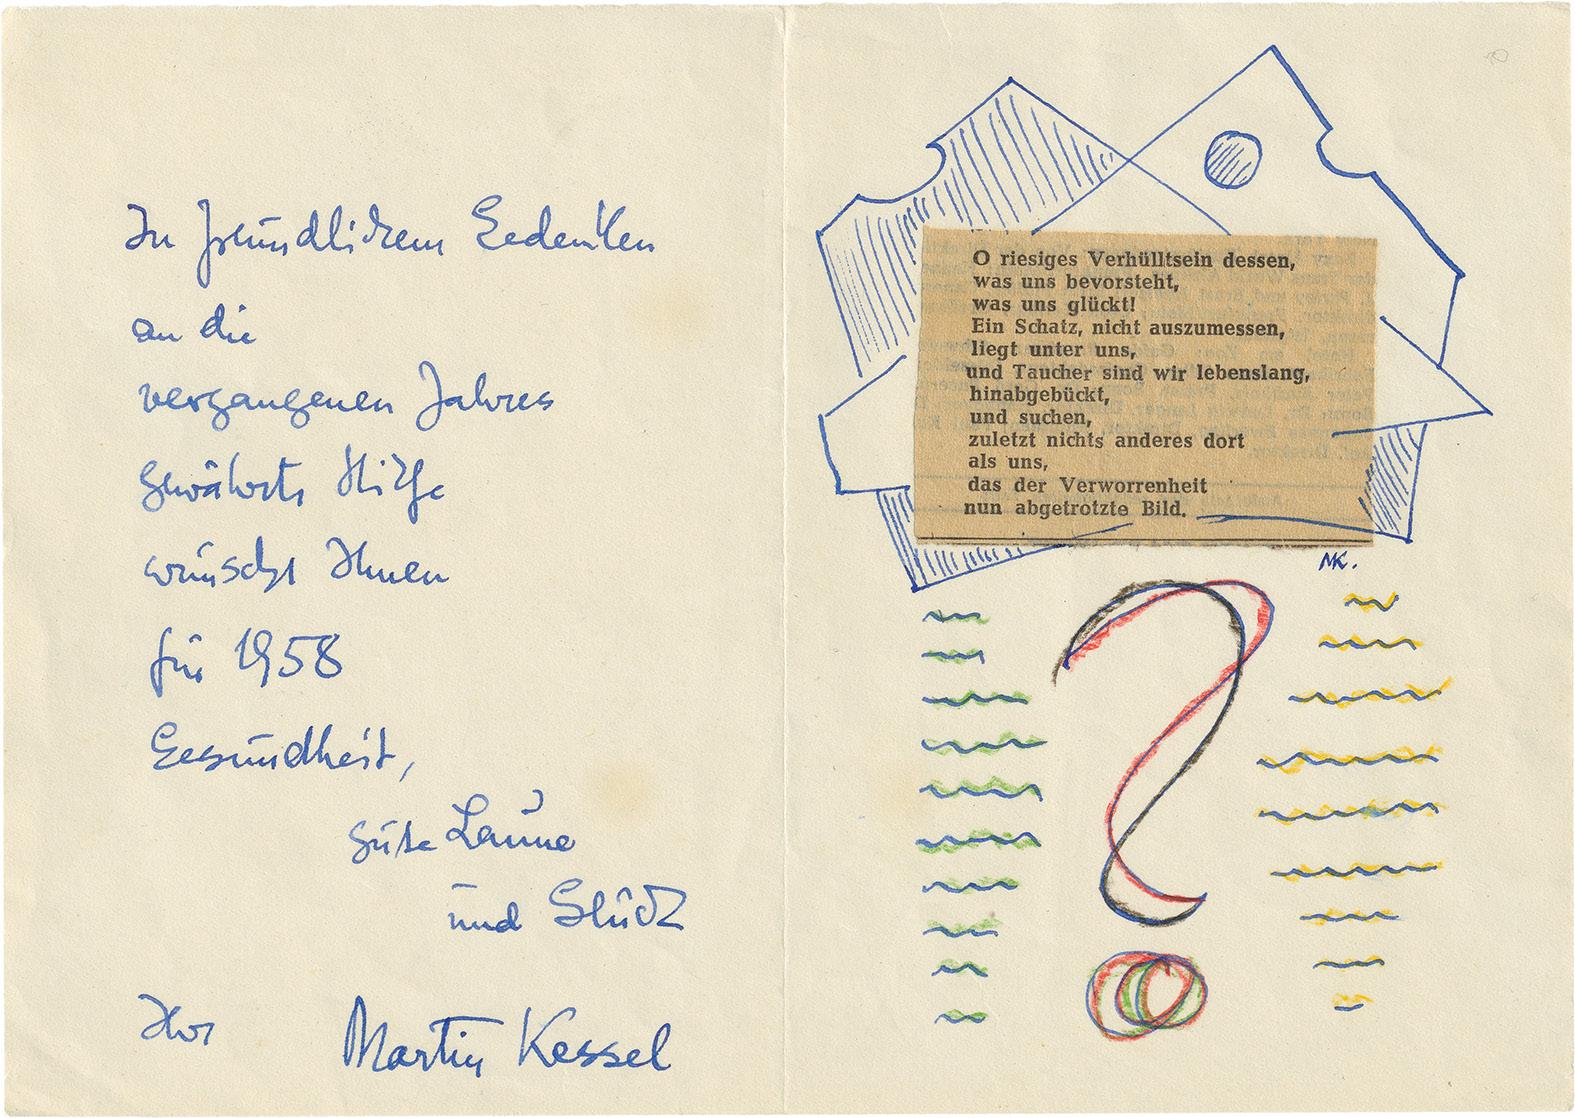 In freundlichem Gedenken
an die
vergangenen Jahres
gewährte Hilfe
wünscht Ihnen
für 1958
Gesundheit,
gute Laune
und Glück
Ihr Martin Kessel
O riesiges Verhülltsein dessen,
was uns bevorsteht,
was uns glückt!
Ein Schatz, nicht auszumessen,
liegt unter uns,
und Taucher sind wir lebenslang,
hinabgebückt,
und suchen,
zuletzt nichts anderes dort
als uns,
das der Verworrenheit
nun abgetrotzte Bild.
MK.